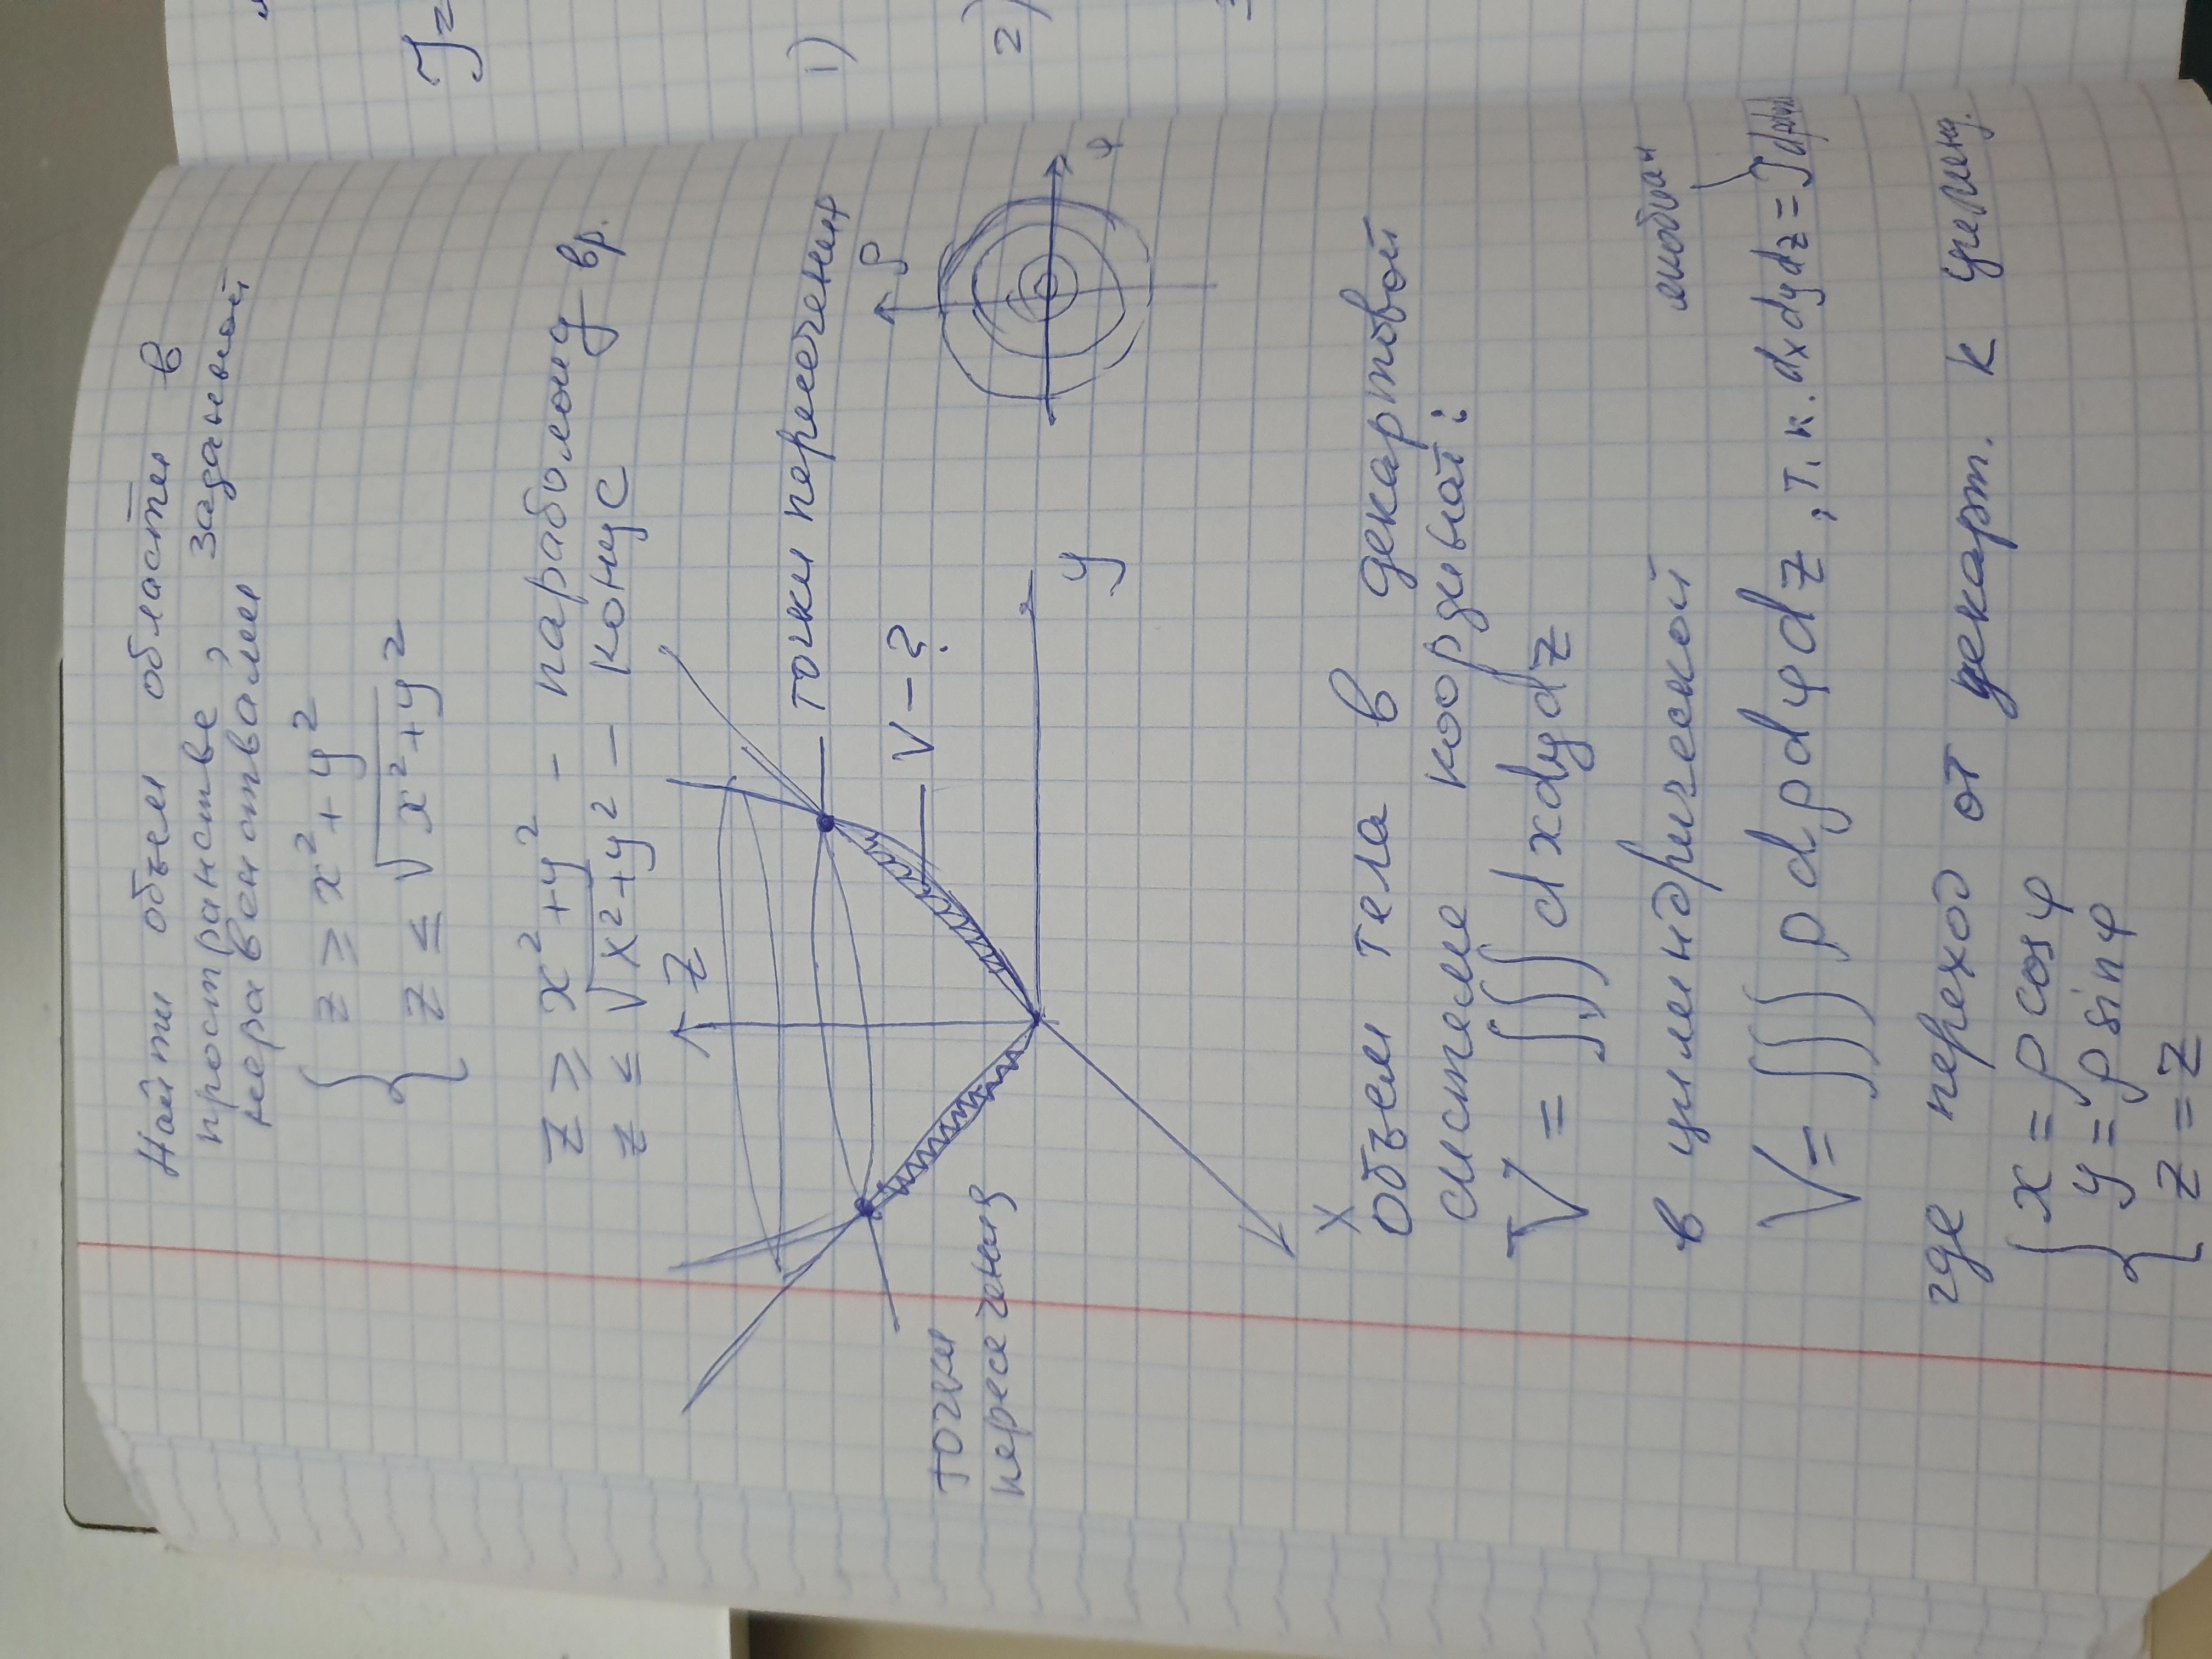 Найти объем области в
пространстве, заданной
неравенствами
z ≥ x² + y²
z ≤ √x² + y²
z ≥ x² + y² - параболоид вр.
z ≤ √x² + y² - конус
z
точки пересечения
ρ
V - ?
φ
y
точки
пересечения
x
Объем тела в декартовой
системе координат:
V = ∭ dxdydz
якобиан
в цилиндрической
V = ∭ ρ dρ dφ dz, т.к. dxdydz = J dρdφdz
где переход от декарт. к цилинд.
x = ρ cos φ
y = ρ sin φ
z = z
J =
1)
2)